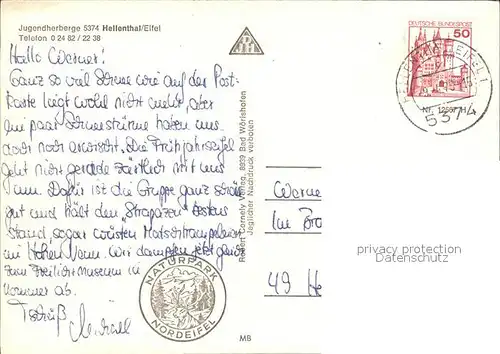 Jugendherberge 5374 Hellenthal/Eifel
Telefon 0 24 82 / 22 38
Hallo Werner!
Ganz so viel Schnee wie auf der Post-
karte liegt wohl nicht mehr, aber
ein paar Schneestürme haben uns
doch noch erwischt. Die Frühjahrseifel
geht nicht gerade zärtlich mit uns
um. Dafür ist die Gruppe ganz
gut und hält den "Strapazen" bestens
stand, sogar wüsten Matschtrampeleien
im Hohen Venn. Wir dampfen jetzt
zum Freilichtmuseum in
Kommern ab.
Tschüß
NATURPARK
NORDEIFEL
Robert Cornely Verlag, 8939 Bad Wörishofen
Jeglicher Nachdruck verboten
MB
DEUTSCHE BUNDESPOST
50
HELLENTHAL, EIFEL
5374
Werne
Im Bro
49 He
privacy protection
Datenschutz